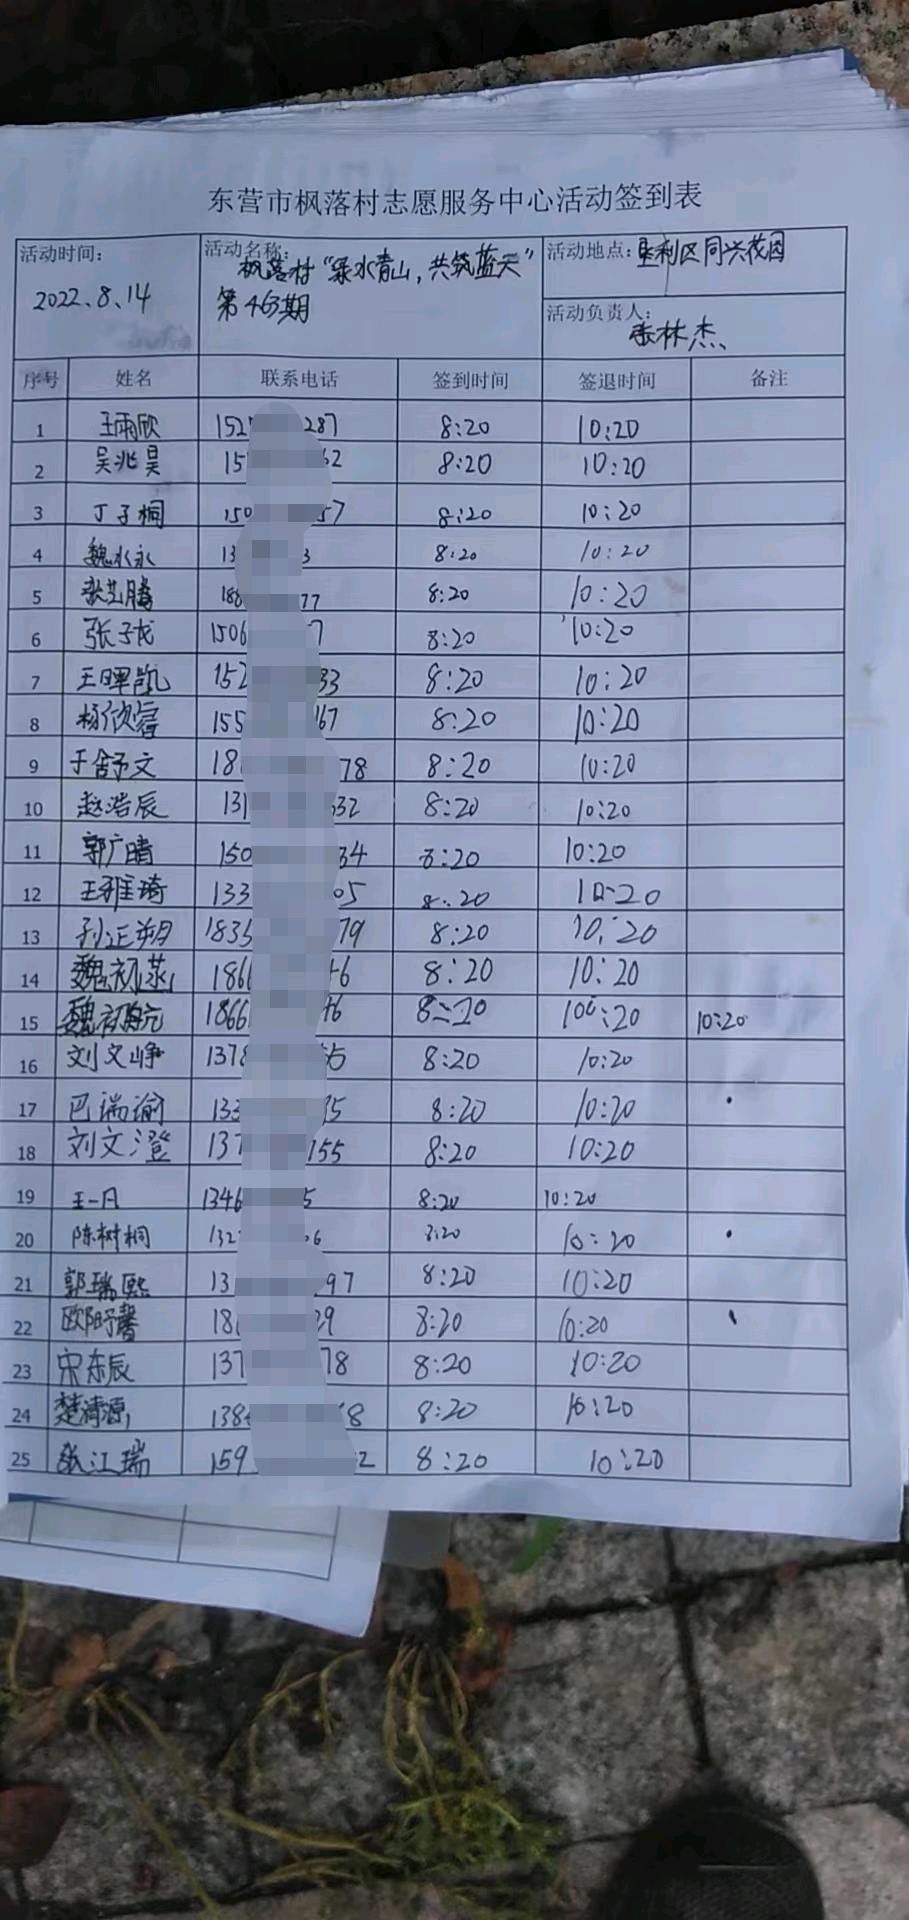 东营市枫落村志愿服务中心活动签到表
活动时间: 2022.8.14
活动名称: 枫落村“绿水青山,共筑蓝天”
第463期
活动地点: 垦利区同兴花园
活动负责人: 张林杰
序号 姓名 联系电话 签到时间 签退时间 备注
1 王雨欣 152 287 8:20 10:20
2 吴兆昊 15 62 8:20 10:20
3 丁子桐 150 57 8:20 10:20
4 魏水永 13 3 8:20 10:20
5 张 腾 188 77 8:20 10:20
6 张子龙 1506 7 8:20 10:20
7 王晖凯 152 33 8:20 10:20
8 杨欣睿 155 167 8:20 10:20
9 于舒文 18 78 8:20 10:20
10 赵浩辰 131 332 8:20 10:20
11 郭广晴 150 34 8:20 10:20
12 王雅琦 133 05 8:20 10:20
13 孙正朔 1835 79 8:20 10:20
14 魏初 1866 46 8:20 10:20
15 魏初航 1866 46 8:20 10:20 10:20
16 刘文峥 1378 55 8:20 10:20
17 巴瑞瑜 133 35 8:20 10:20
18 刘文澄 137 155 8:20 10:20
19 王一凡 1346 5 8:20 10:20
20 陈树桐 132 06 8:20 10:20
21 郭瑞熙 13 97 8:20 10:20
22 欧阳予馨 18 39 8:20 10:20
23 宋东辰 137 78 8:20 10:20
24 楚清源 138 68 8:20 10:20
25 张江瑞 159 2 8:20 10:20